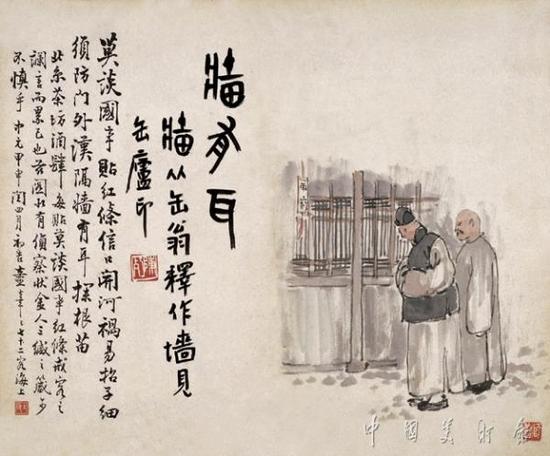 牆有耳
牆从缶翁釋作墻見
缶廬印
莫談國事貼紅條信口開河禍易招子細
須防門外漢隔牆有耳探根苗
北京茶坊酒肆每貼莫談國事紅條戒客之
讕言而累己也茲圖狀有偵察狀金人三緘之箴可
不慎乎 中元甲申閏四月初吉 年七十二客海上
中國美術館